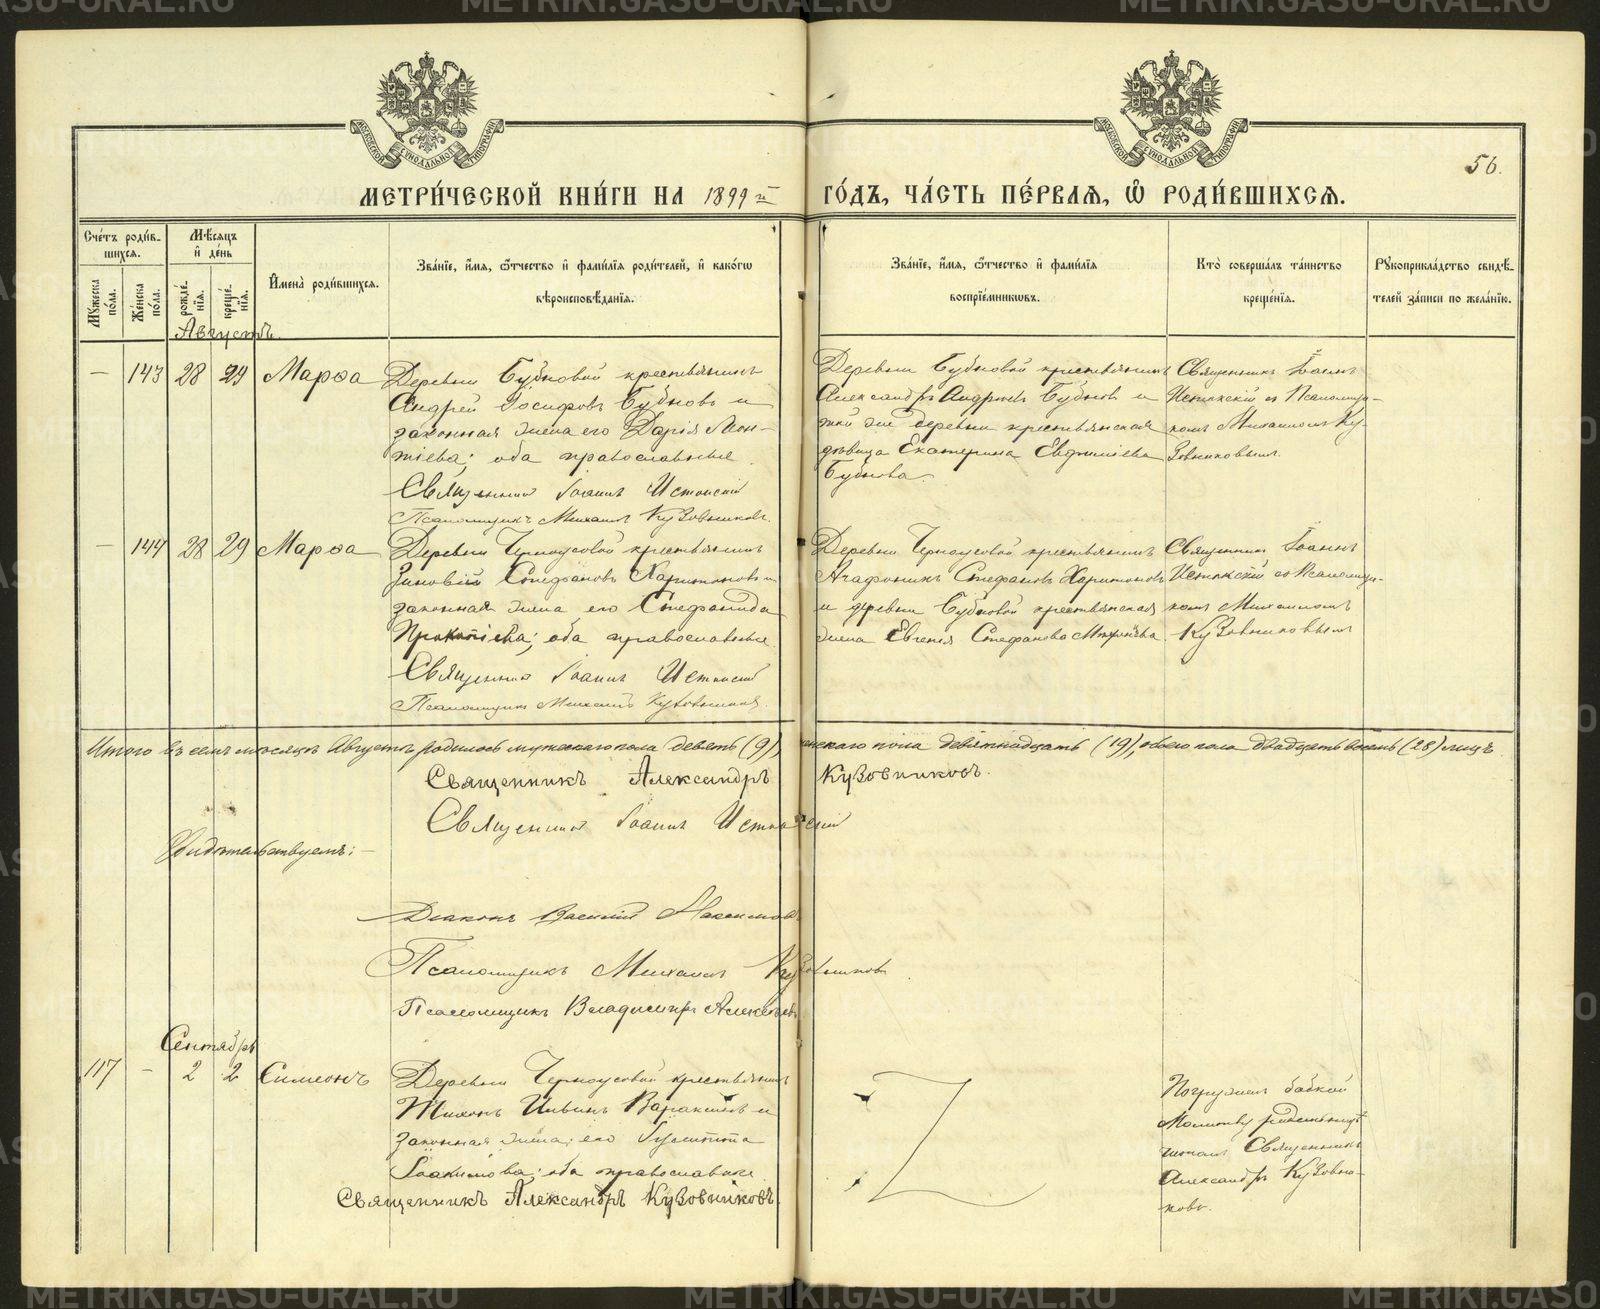 МОСКОВСКОЙ СУНОДАЛЬНОЙ ТИПОГРАФИИ
МОСКОВСКОЙ СУНОДАЛЬНОЙ ТИПОГРАФИИ
56.
МЕТРИ́ЧЕСКОЙ КНИ́ГИ НА 1899 й ГО́ДЪ, ЧА́СТЬ ПЕ́РВАЯ, Ѡ РОДИ́ВШИХСЯ.
Сче́тъ роди́в-
шихся.
Мꙋжеска по́ла.
Же́нска по́ла.
Мѣ́сяцъ
и҆ де́нь
рожде́нїя.
креще́нїя.
И҆мена̀ роди́вшихся.
Зва́нїе, и҆́мя, ѻ҆́тчество и҆ фами́лїя роди́телей, и҆ како́гѡ
вѣроисповѣ́данїя.
Зва́нїе, и҆́мя, ѻ҆́тчество и҆ фами́лїя
воспрїе́мниковъ.
Кто̀ соверша́лъ та́инство
креще́нїя.
Рꙋкоприкла́дство свидѣ́-
телей за́писи по жела́нїю.
Августъ.
— 143 28 29 Марѳа
Деревни Бубновой крестьянинъ
Андрей Іосифовъ Бубновъ и
законная жена его Дарія Леон-
тіева; оба православные
Священникъ Іоаннъ Истокскій
Псаломщикъ Михаилъ Кузовниковъ.
Деревни Бубновой крестьянинъ
Александръ Андреевъ Бубновъ и
той же деревни крестьянская
дѣвица Екатерина Евфиміева
Бубнова.
Священникъ Іоаннъ
Истокскій съ Псаломщи-
комъ Михаиломъ Ку-
зовниковымъ.
— 144 28 29 Марѳа
Деревни Черноусовой крестьянинъ
Зиновій Стефановъ Харитоновъ и
законная жена его Стефанида
Прокопіева; оба православные
Священникъ Іоаннъ Истокскій
Псаломщикъ Михаилъ Кузовниковъ.
Деревни Черноусовой крестьянинъ
Агафоникъ Стефановъ Харитоновъ
и деревни Бубновой крестьянская
жена Евгенія Стефанова
Священникъ Іоаннъ
Истокскій съ Псаломщи-
комъ Михаиломъ
Кузовниковымъ
Итого въ семъ мѣсяцѣ Августѣ родилось мужескаго пола девять (9), женскаго пола девятнадцать (19), обоего пола двадцать восемь (28) лицъ.
Священникъ Александръ Кузовниковъ.
Священникъ Іоаннъ Истокскій
Свидѣтельствуемъ: —
Діаконъ Василій Максимовъ
Псаломщикъ Михаилъ Кузовниковъ.
Псаломщикъ Владиміръ Алексѣевъ
Сентябрь
117 — 2 2 Симеонъ
Деревни Черноусовой крестьянинъ
Тихонъ Ильинъ Варакинъ и
законная жена его Іулитта
Іоакимова; оба православные
Священникъ Александръ Кузовниковъ.
Погруженъ бабкой
Молитву родительницѣ
читалъ Священникъ
Александръ Кузовни-
ковъ.
METRIKI.GASU-URAL.RU